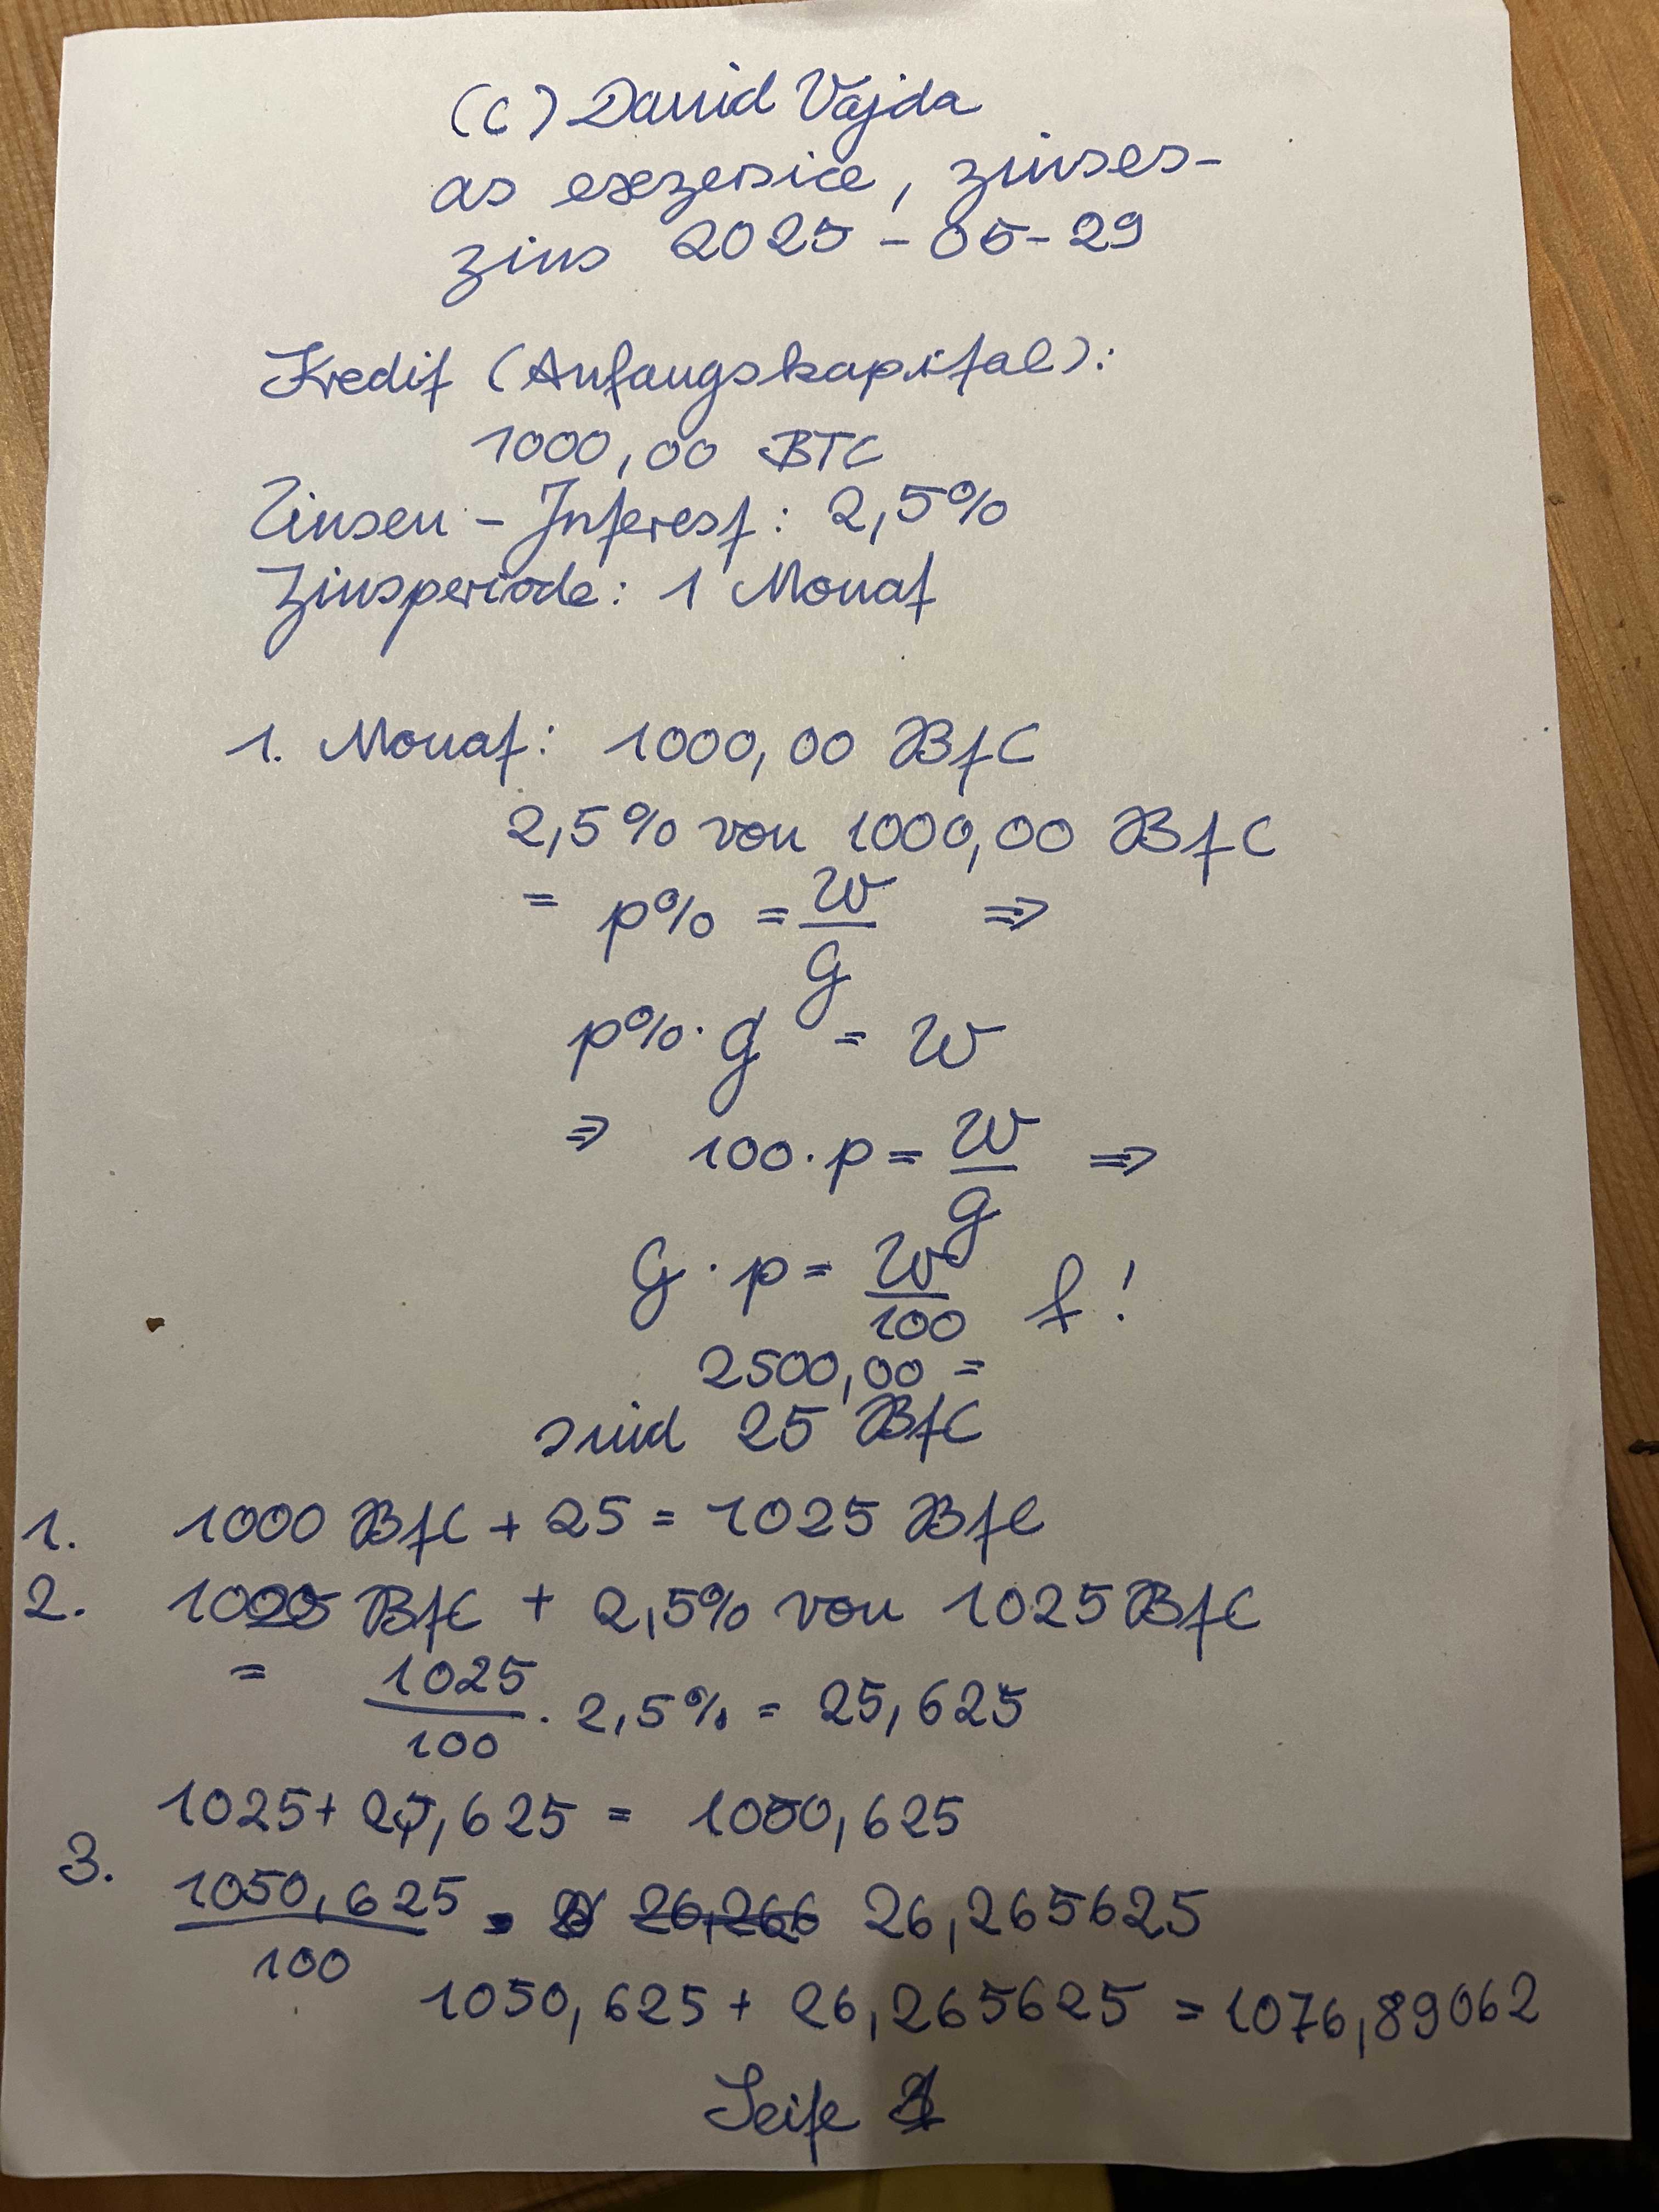 (C) David Vajda
as exezersice, zinses-
zins 2025-05-29
Kredit (Anfangskapital):
1000,00 BTC
Zinsen - Interest: 2,5%
Zinsperiode: 1 Monat
1. Monat: 1000,00 BtC
2,5% von 1000,00 BtC
= p% = W/G ⇒
p% · G = W
⇒ 100 · p = W/G ⇒
G · p = W/100 f!
2500,00 =
sind 25 BtC
1. 1000 BtC + 25 = 1025 BtC
2. 1025 BtC + 2,5% von 1025 BtC
= 1025/100 · 2,5% = 25,625
1025 + 25,625 = 1050,625
3. 1050,625/100 · 26,266 26,265625
1050,625 + 26,265625 = 1076,89062
Seite